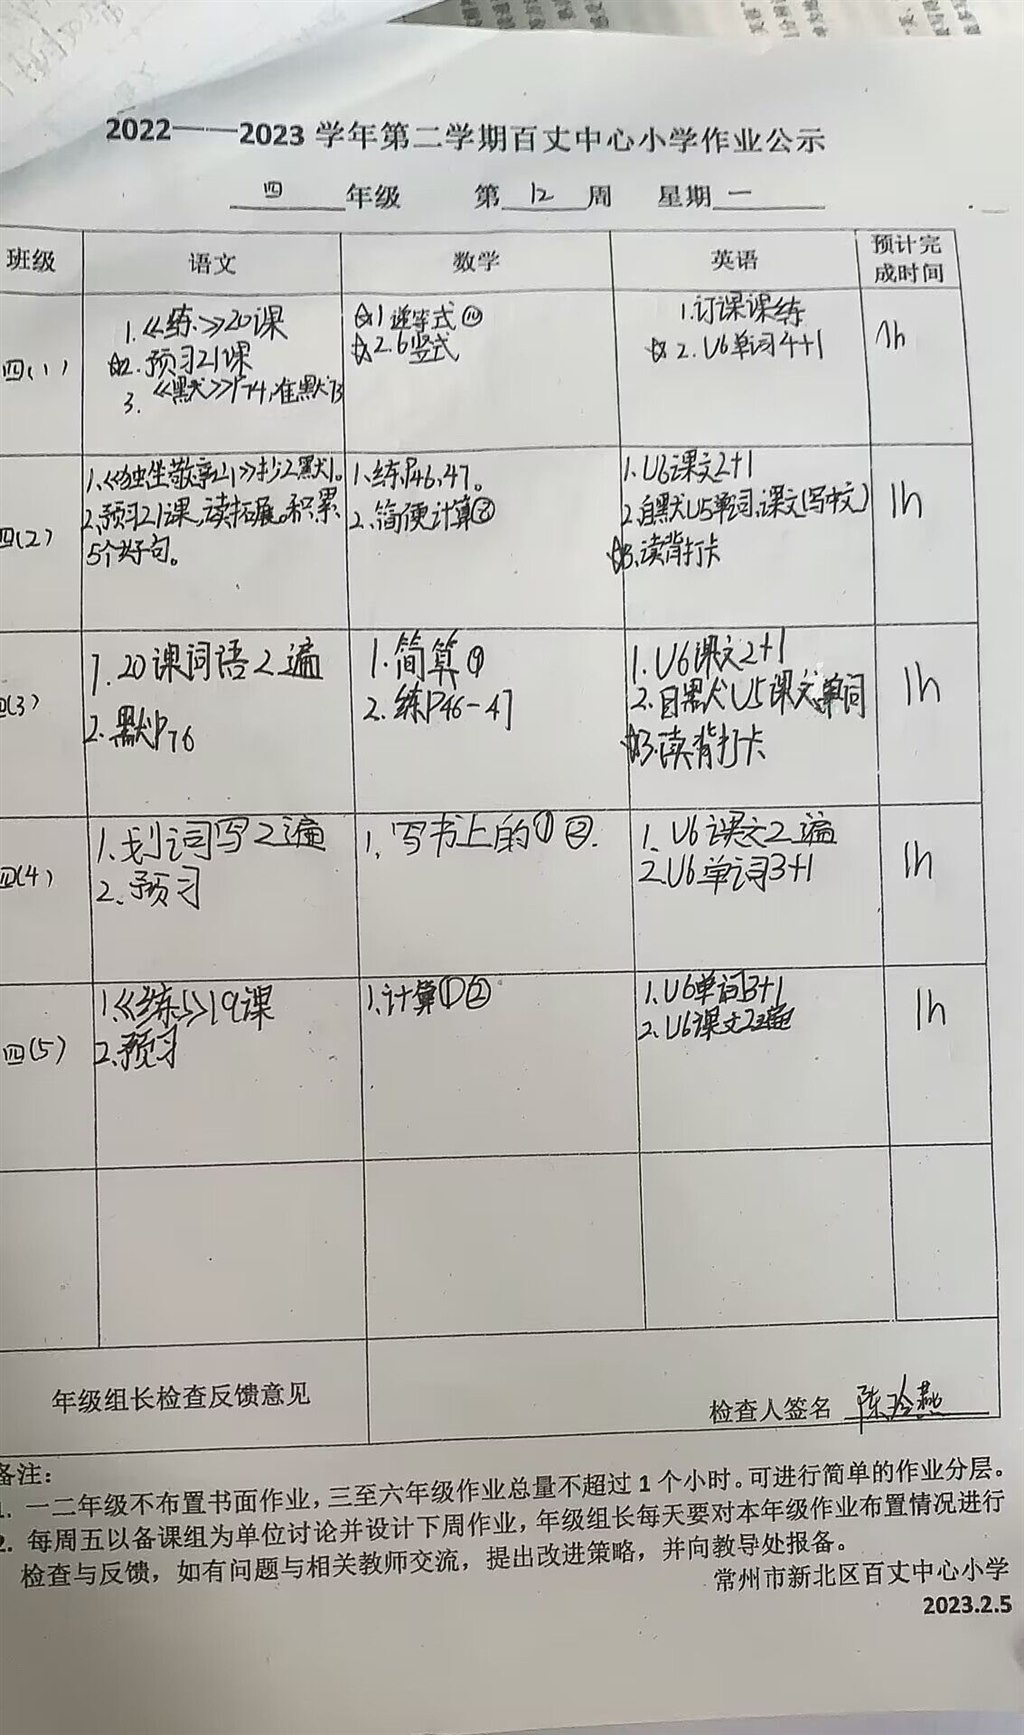 2022——2023 学年第二学期百丈中心小学作业公示
四 年级 第 12 周 星期 一
班级 语文 数学 英语 预计完成时间
四(1)
1.《练》20课
☆2.预习21课
3.《默》P74,准默73
☆1递等式④
☆2.6竖式
1.订课课练
☆2.U6单词4+1
1h
四(2)
1.《独坐敬亭山》抄2默1。
2.预习21课,读拓展。积累
5个好句。
1.练P46,47。
2.简便计算②
1.U6课文2+1
2.自默U5单词,课文(写中文)
☆3.读背打卡
1h
四(3)
1.20课词语2遍
2.默P76
1.简算④
2.练P46-47
1.U6课文2+1
2.自默U5课文,单词
☆3.读背打卡
1h
四(4)
1.划词写2遍
2.预习
1.写书上的①②.
1.U6课文2遍
2.U6单词3+1
1h
四(5)
1.《练》19课
2.预习
1.计算①②
1.U6单词3+1
2.U6课文2遍
1h
年级组长检查反馈意见
检查人签名 陈玲燕
备注:
1. 一二年级不布置书面作业,三至六年级作业总量不超过 1 个小时。可进行简单的作业分层。
2. 每周五以备课组为单位讨论并设计下周作业,年级组长每天要对本年级作业布置情况进行
检查与反馈,如有问题与相关教师交流,提出改进策略,并向教导处报备。
常州市新北区百丈中心小学
2023.2.5